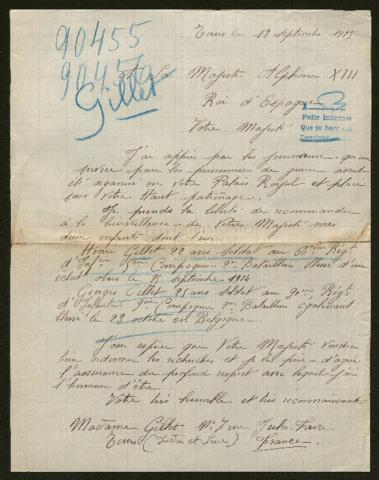 Tours le 13 Septembre 1915
90455
9045
Gillet
A Sa Majesté Alphonse XIII
Roi d'Espagne
Pedir informes
Que se hace así
Votre Majesté
J'ai appris par les journaux qu'un
service pour les prisonniers de guerre avait
été organisé en votre Palais Royal et placé
sous Votre Haut patronage.
Je prends la liberté de recommander
à la bienveillance de Votre Majesté mes
deux enfants dont l'un
Henri Gillet 22 ans Soldat au Régt
d'Infie Compagnie 2e Bataillon blessé d'un
éclat obus le 8 septembre 1914
Georges Gillet 21 ans Soldat au 90ème Régt
d'Infanterie Compagnie Bataillon également
blessé le 23 octobre en Belgique.
J'ose espérer que Votre Majesté voudra
bien ordonner les recherches et je la prie d'agréer
l'assurance du profond respect avec lequel j'ai
l'honneur d'être
Votre très humble et très reconnaissante
Madame Gillet No 7 rue Jules Favre
Tours (Indre et Loire) France.